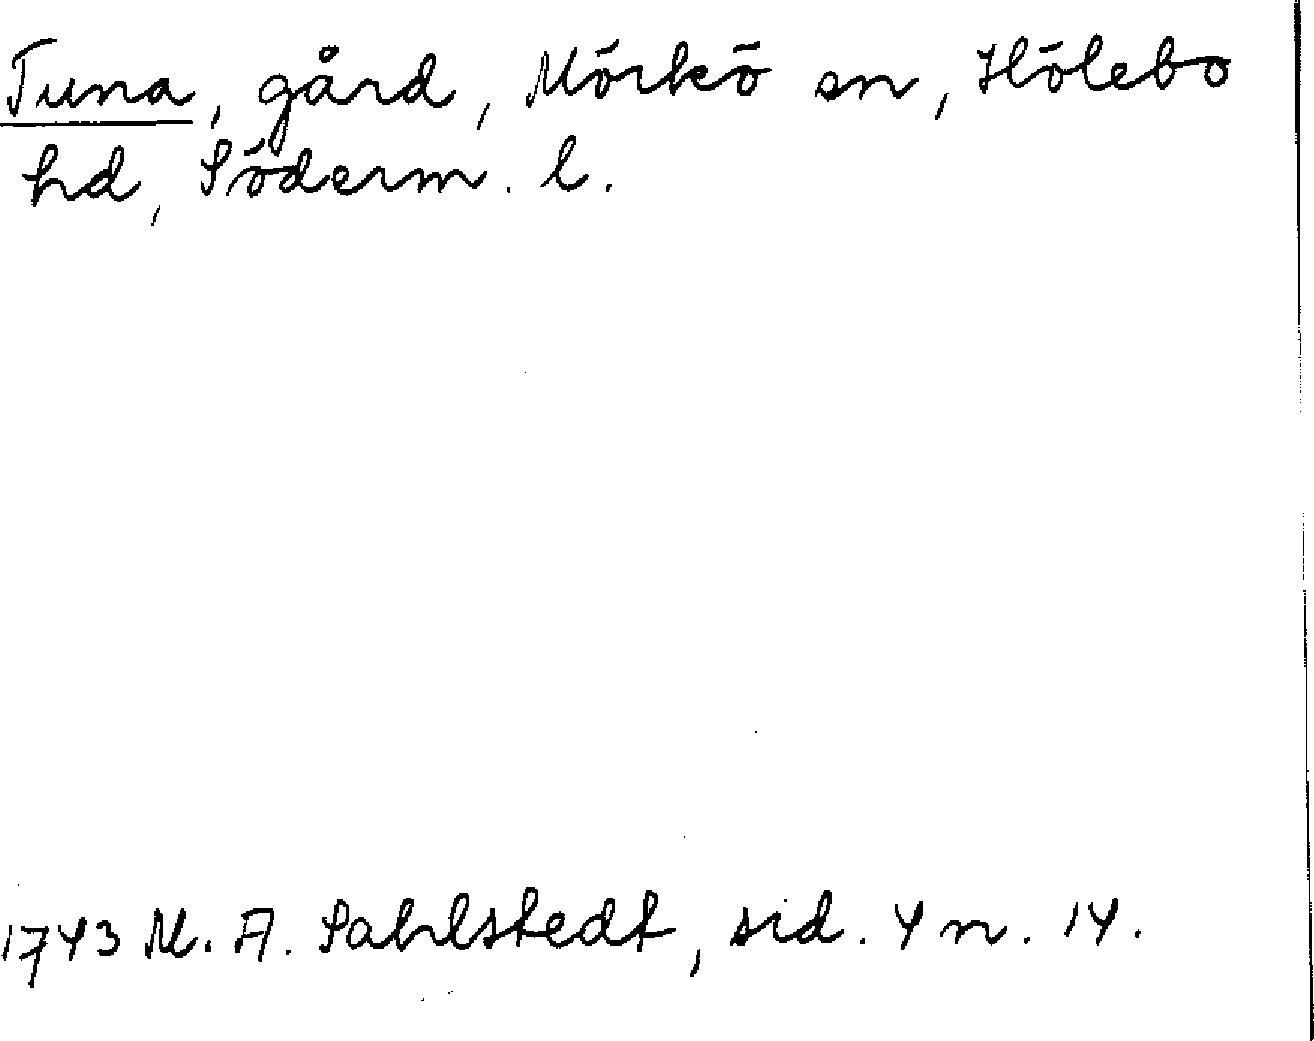 Tuna, gård, Mörkö sn, Hölebo
hd, Söderm. l.
1743 M. A. Sahlstedt, sid. 4 n. 14.